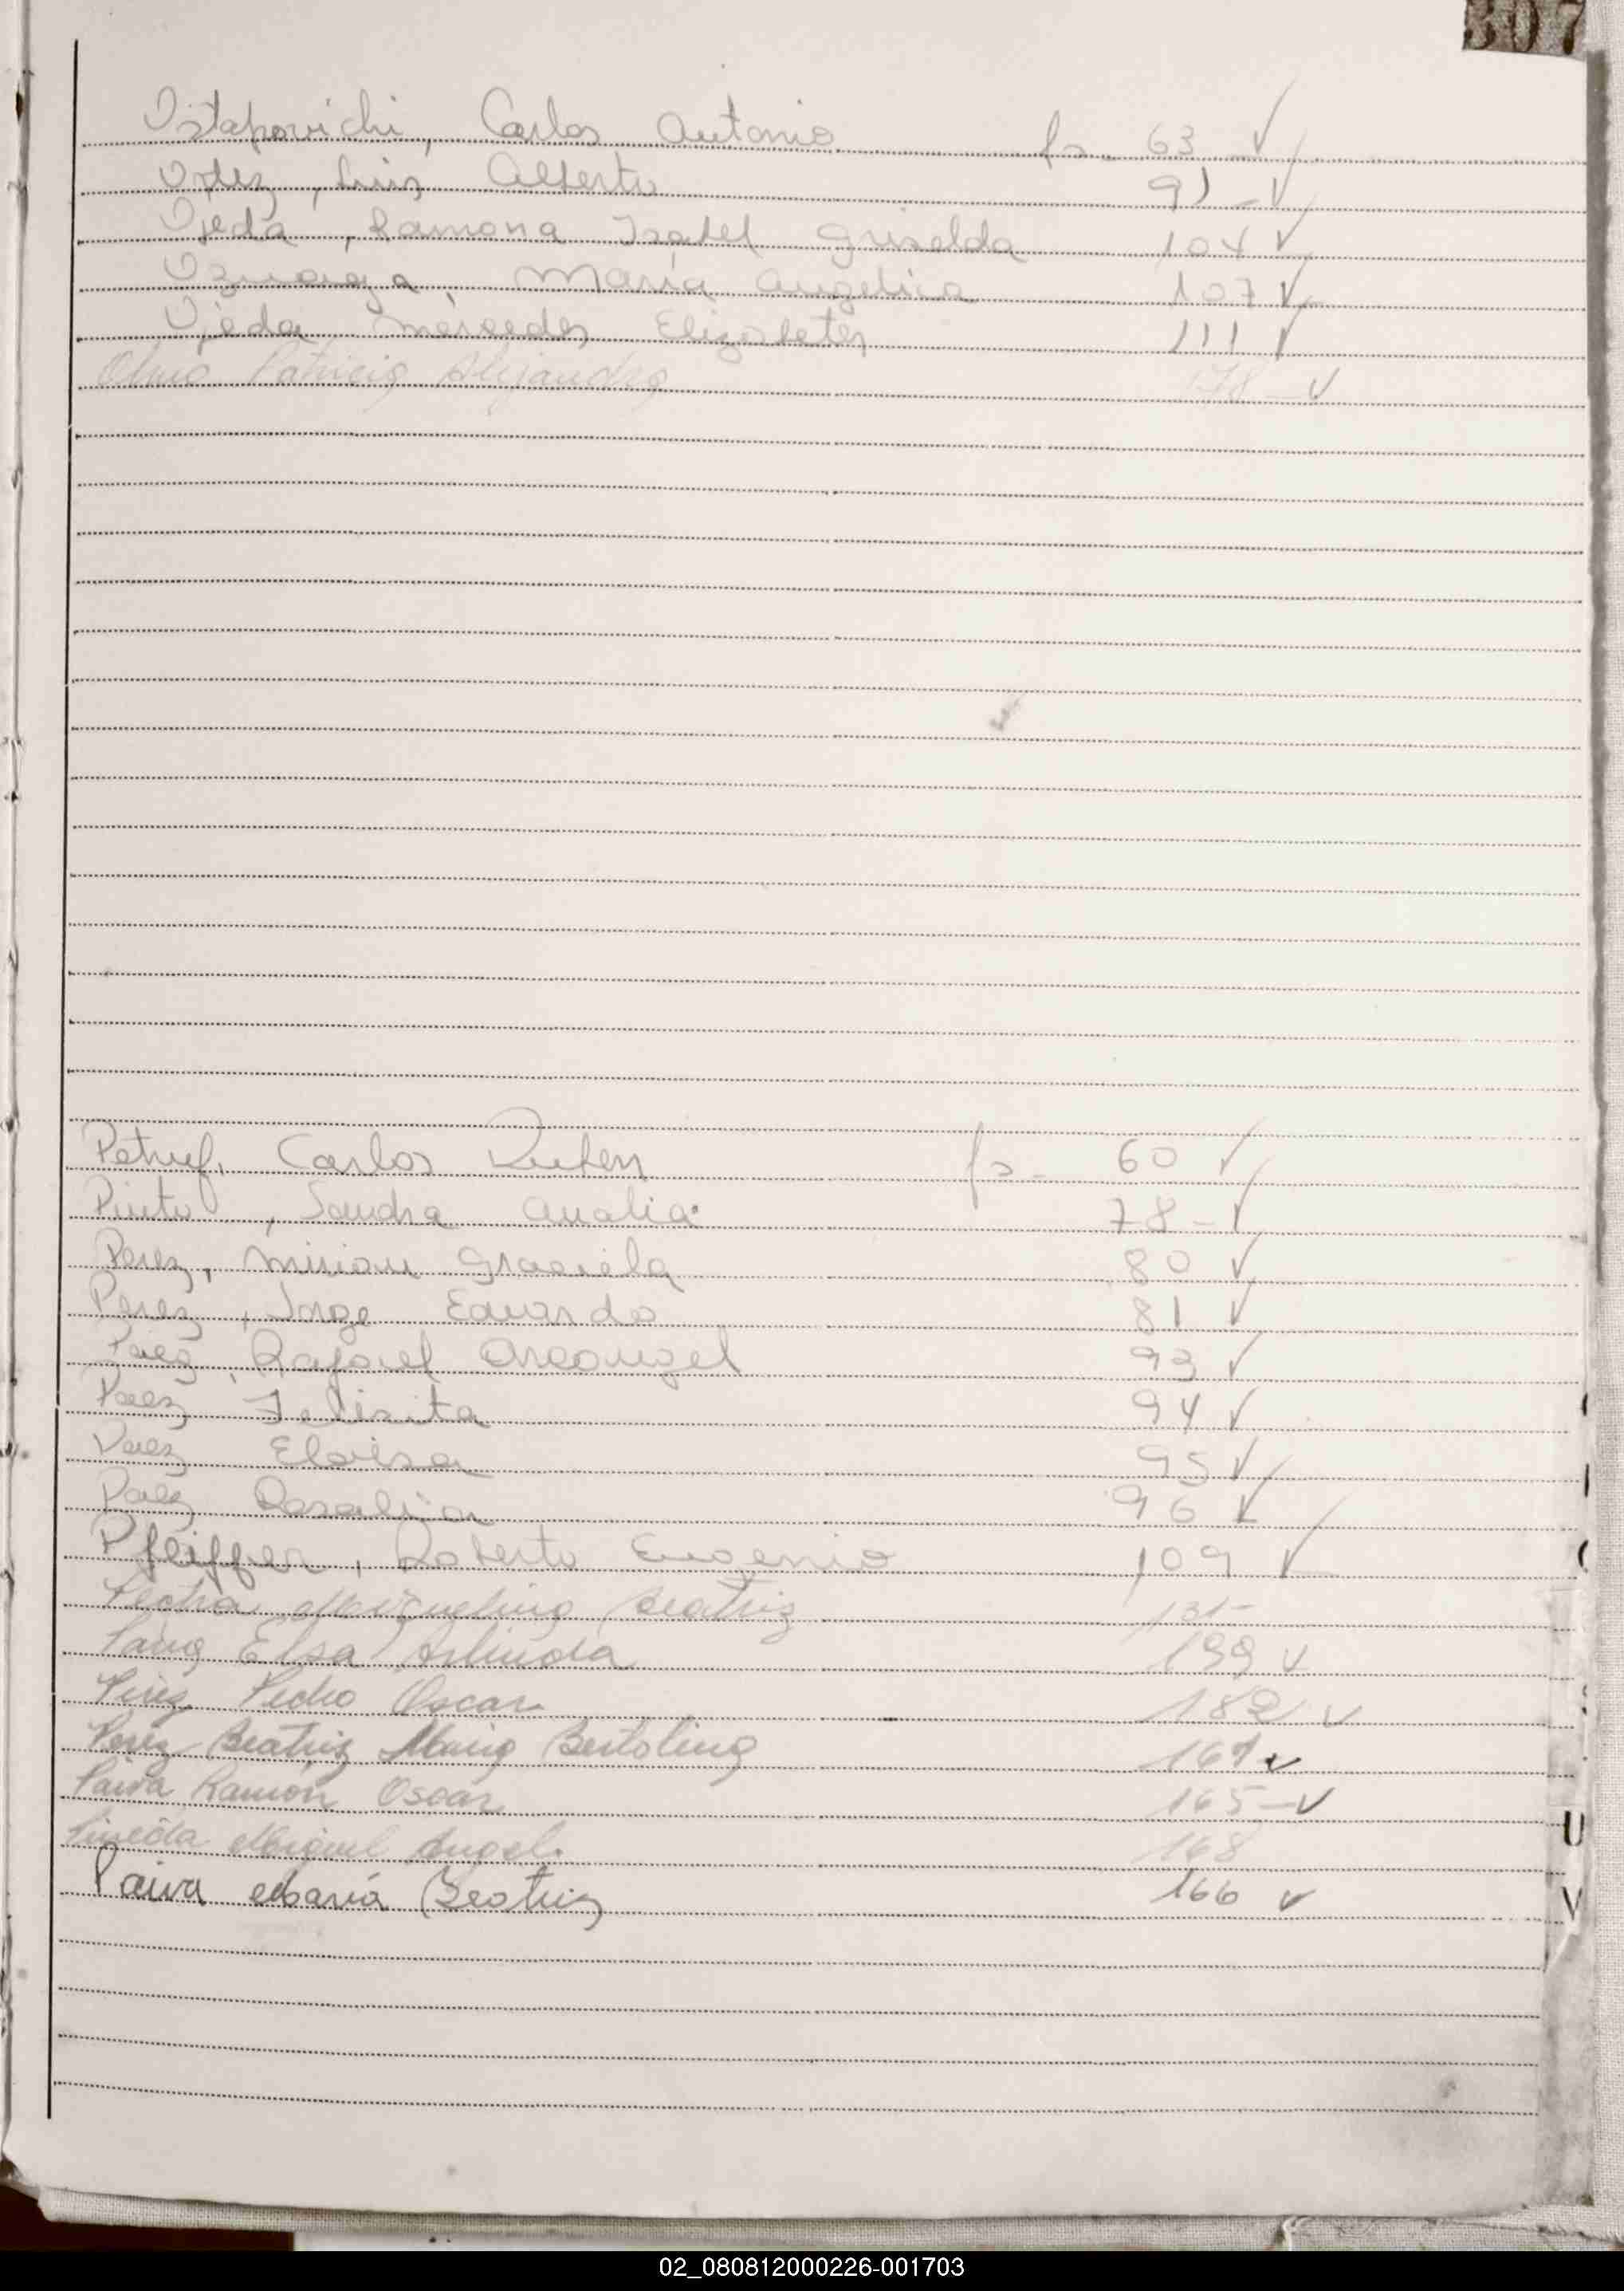 307
Ostapovichi, Carlos Antonio fs. 63 ✓
Ortez, Luis Alberto 91 - ✓
Ojeda, Ramona Isabel Griselda 104 ✓
Oznaga, María Angelica 107 ✓
Ojeda Mercedes Elizabeter 111 ✓
Olmo Patricia Alejandra 178 - ✓
Petruf, Carlos Ruben fs - 60 ✓
Pinto, Sandra Analia 78 - ✓
Perez, Miriam Graciela 80 ✓
Perez, Jorge Eduardo 81 ✓
Paez, Rafael Arcangel 93 ✓
Paez Felisita 94 ✓
Paez Eloisa 95 ✓
Paez Rosalia 96 ✓
Pfeiffer, Roberto Eugenio 109 ✓
Beatriz 131-
Elsa Arlinda 139 ✓
Pedro Oscar 182 ✓
Perez Beatriz Maria Bertolina 161 ✓
Paiva Ramón Oscar 165 - ✓
Pineda Miguel Angel. 168
Paiva María Beatriz 166 ✓
U
V
02_080812000226-001703